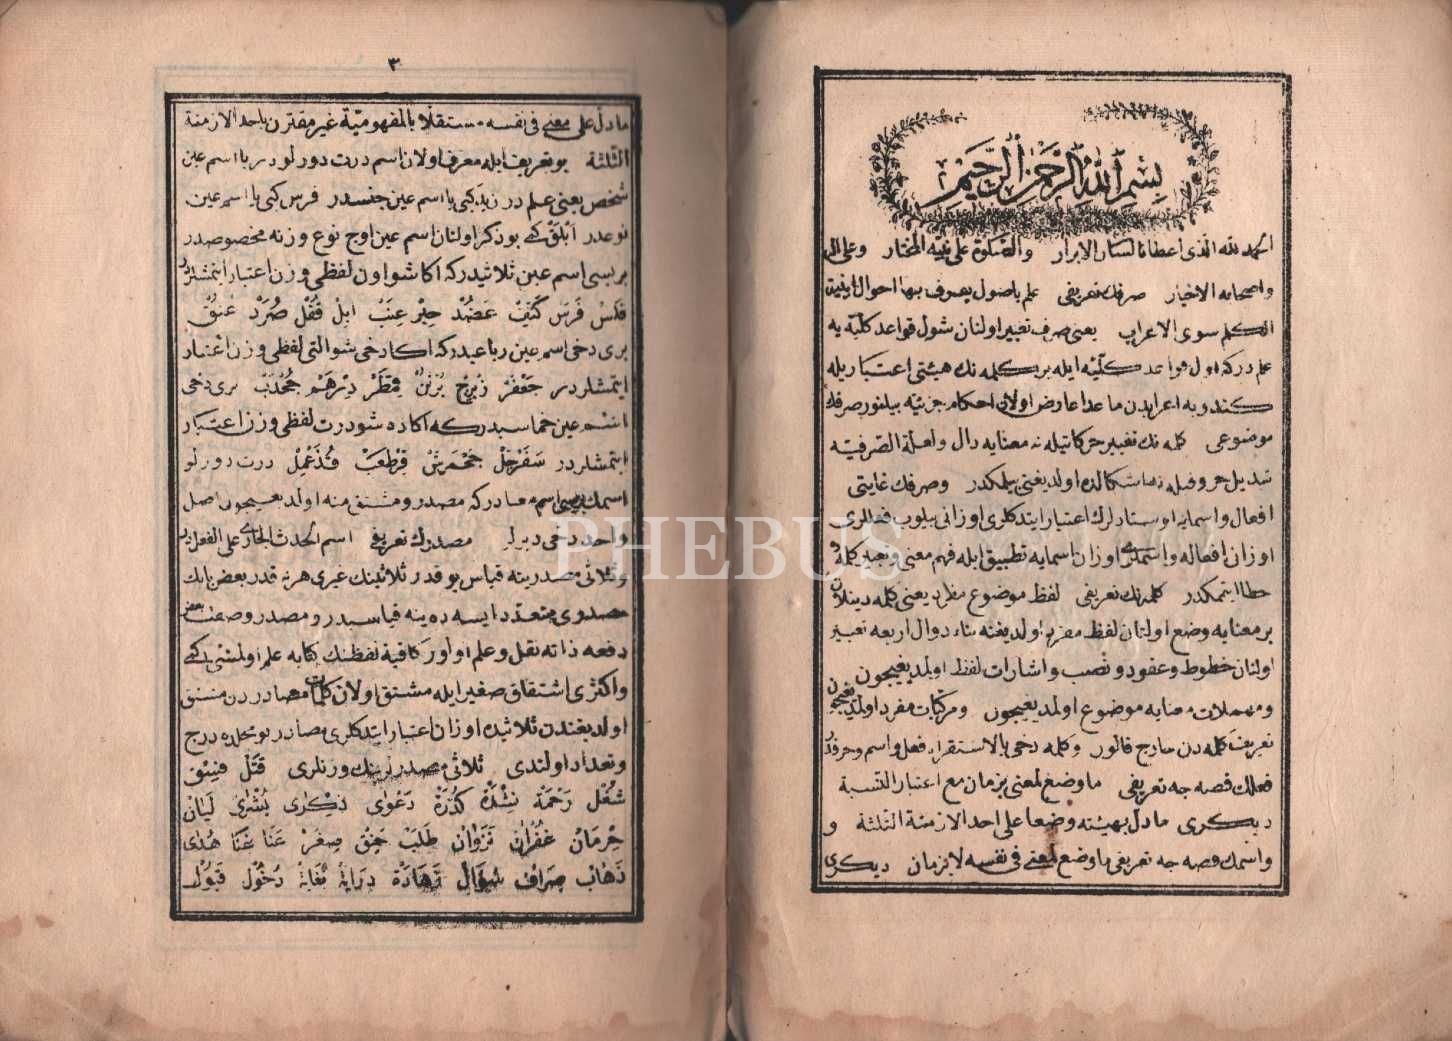 بسم الله الرحمن الرحيم
الحمد لله الذى اعطانا لسان الابرار والصلوة على نبيه المختار وعلى اله
واصحابه الاخيار صرفك تعريفى علم باصول يعرف بها احوال ابنية
الكلم سوى الاعراب يعنى صرف تعبير اولنان شول قواعد كليه يه
علم دركه اول قواعد كليه ايله بر كلمه نك هيئتى اعتباريله
كندويه اعرابدن ماعدا عارض اولان احكام جزئيه بيلنور صرفك
موضوعى كلمه نك تغيير حركاتيله نه معنايه دال
تبديل حروفيله نه اشكالده اولديغنى بيلمكدر وصرفك غايتى
افعال واسمايه اوستادلرك اعتبار ايتدكلرى اوزانى بيلوب فعللرى
اوزان افعاله واسملرى اوزان اسمايه تطبيق ايله فهم معنى وتعبير كلمه ده
خطا ايتمكدر كلمه نك تعريفى لفظ موضوع مفرد يعنى كلمه دينلان
بر معنايه وضع اولنان لفظ مفرد اولديغنه بناء دوال اربعه تعبير
اولنان خطوط وعقود ونصب واشارات لفظ اولمديغيچون
ومهملات معنايه موضوع اولمديغيچون ومركبات مفرد اولمديغيچون
تعريف كلمه دن خارج قالور وكلمه دخى بالاستقراء فعل واسم وحرفدر
فعلك قصه جه تعريفى ما وضع لمعنى بزمان مع اعتبار النسبة
ديكرى مادل بهيئته وضعا على احد الازمنة الثلثة و
واسمك قصه جه تعريفى ما وضع لمعنى فى نفسه لا بزمان ديكرى
٣
مادل على معنى فى نفسه مستقلا بالمفهومية غير مقترن باحد الازمنة
الثلثة بو تعريف ايله معرف اولان اسم درت دورلودر يا اسم عين
شخص يعنى علم در زيد كبى يا اسم عين جنسدر فرس كبى يا اسم عين
نوعدر ابلق كبى بو ذكر اولنان اسم عين اوج نوع وزنه مخصوصدر
بريسى اسم عين ثلاثيدركه اكا شو اون لفظى وزن اعتبار ايتمشلردر
فلس فرس كتف عضد حبر عنب ابل قفل صرد عنق
برى دخى اسم عين رباعيدركه اكا دخى شو التى لفظى وزن اعتبار
ايتمشلردر جعفر زبرج برثن قمطر درهم جخدب برى دخى
اسم عين خماسيدركه اكا ده شو درت لفظى وزن اعتبار
ايتمشلردر سفرجل جحمرش قرطعب قذعمل درت دورلو
اسمك بريسى اسم معنادركه مصدر ومشتق منه اولديغيچون اصل
واحد دخى ديرلر مصدرك تعريفى اسم الحدث الجارى على الفعلدر
وثلاثى مصدرينه قياس يوقدر ثلاثينك غيرى هرنه قدر بعض بابك
مصدرى متعدد ايسه ده ينه قياسيدر ومصدر وصفت بعض
دفعه ذاته نقل وعلم اولور كافيه لفظنك كتابه علم اولمسى كبى
واكثرى اشتقاق صغير ايله مشتق اولان كلمات مصادردن مشتق
اولديغندن ثلاثيده اوزان اعتبار ايتدكلرى مصادر بو محلده درج
وتعداد اولندى ثلاثى مصدرلرينك وزنلرى قتل فسق
شغل رحمة نشدة كدرة دعوى ذكرى بشرى ليان
حرمان غفران نزوان طلب خنق صغر هدى
ذهاب صراف سؤال زهادة دراية بغاية دخول قبول
PHEBUS